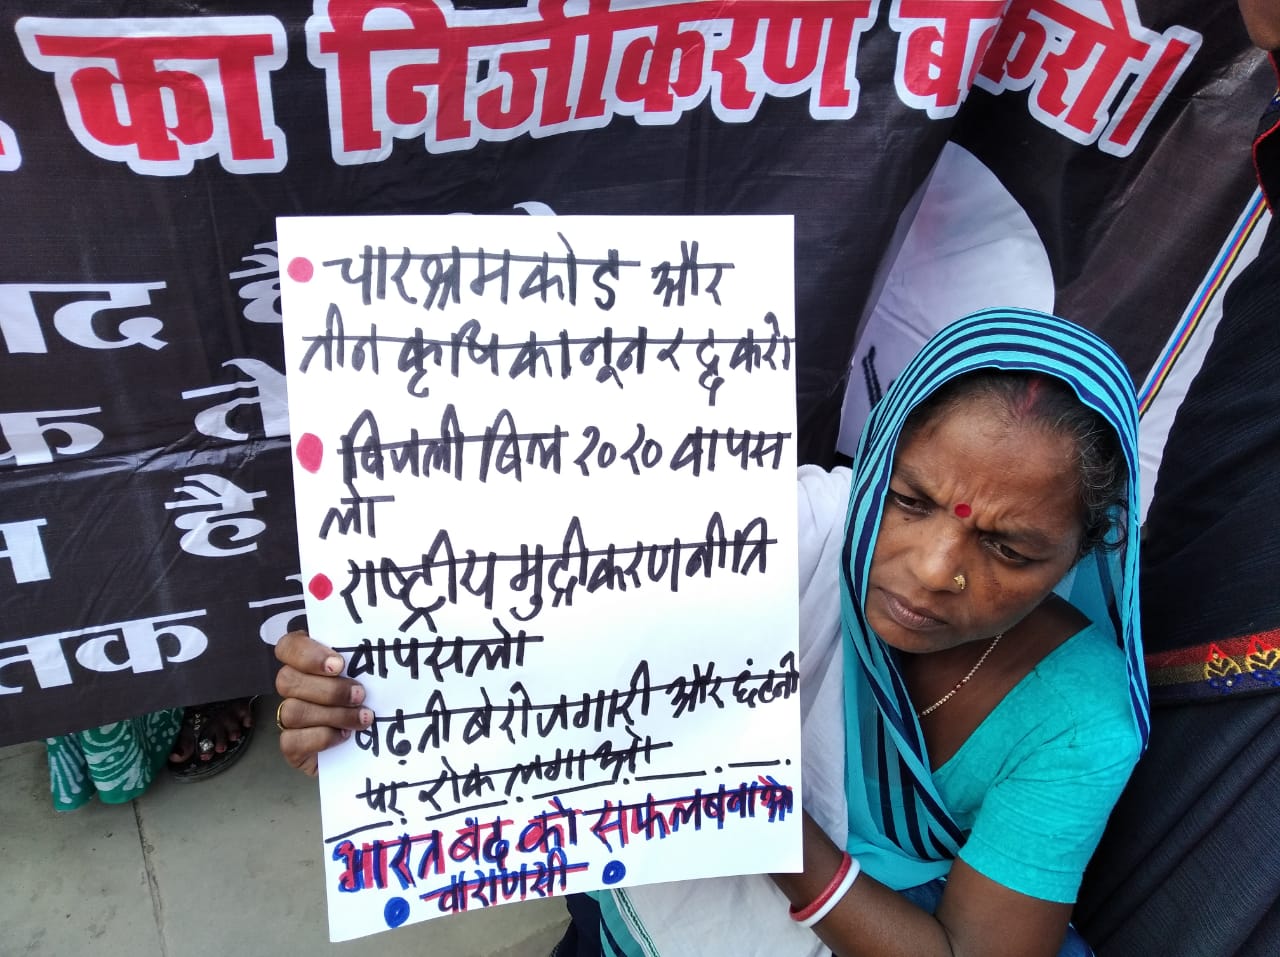 का निजीकरण बंद करो।
ाद है
तो
है
तक
चार श्रम कोड और
तीन कृषि कानून रद्द करो
बिजली बिल २०२० वापस
लो
राष्ट्रीय मुद्रीकरण नीति
वापस लो
बढ़ती बेरोजगारी और छंटनी
पर रोक लगाओ
भारत बंद को सफल बनाओ
वाराणसी